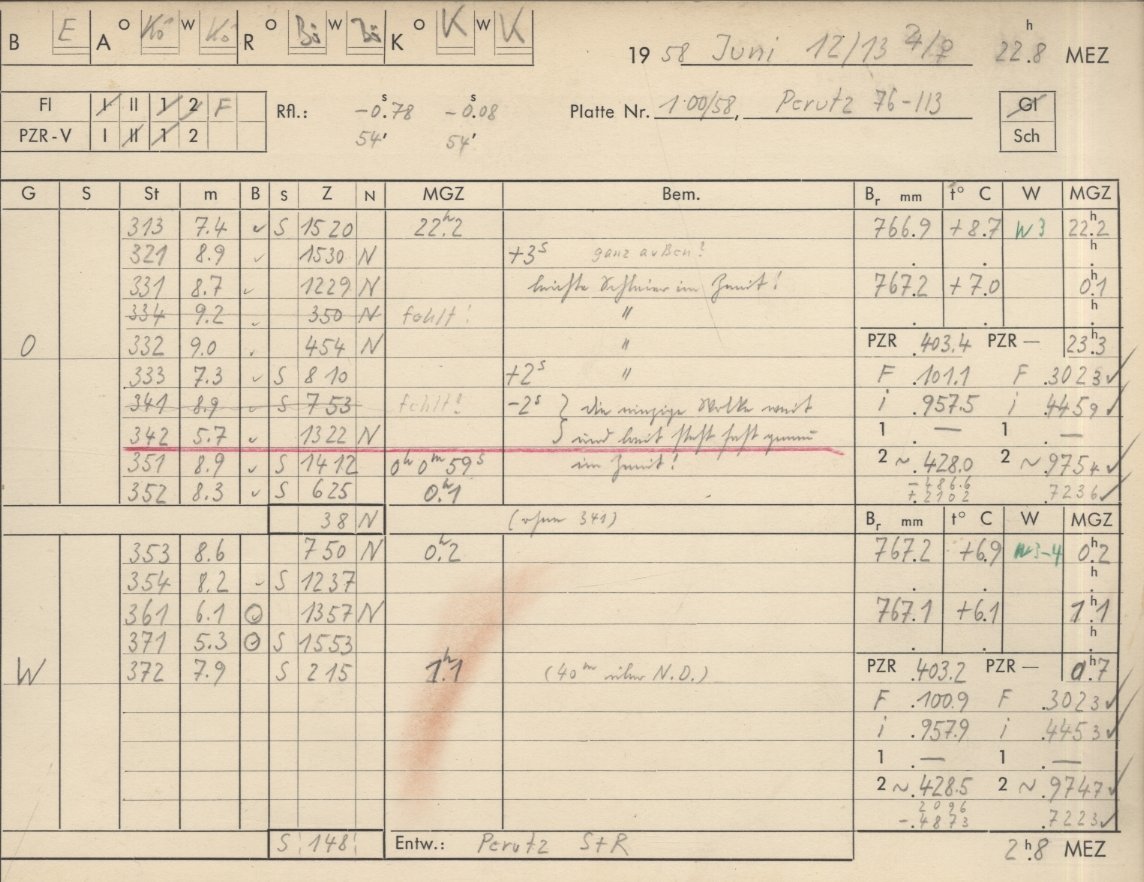 B E A O Kö W Kö R O Bö W Bö K O K W K
19 58 Juni 12/13 22.8 h MEZ
Fl I II 1 2 F Rfl.: -0.78 s -0.08 s Platte Nr. 100/58, Perutz 76-113 Gl
PZR-V I II 1 2 54' 54' Sch
G S St m B S Z N MGZ Bem. Br mm t° C W MGZ
313 7.4 ✓ S 1520 22.2 h 766.9 +8.7 W3 22.2 h
321 8.9 ✓ 1530 N +3 s ganz außen! h
331 8.7 ✓ 1229 N leichte Schleier im Zenit! 767.2 +7.0 0.1
334 9.2 ✓ 350 N fehlt! " h
O 332 9.0 454 N " PZR .403.4 PZR — 23.3 h
333 7.3 ✓ S 810 +2 s " F .101.1 F .3023 ✓
341 8.9 ✓ S 753 fehlt! -2 s } die einzige Wolke weit i .957.5 i .4459 ✓
342 5.7 ✓ 1322 N } und breit steht fast genau 1 . — 1 . —
351 8.9 ✓ S 1412 0 h 0 m 59 s im Zenit! 2 ~ .428.0 2 ~ .9754 ✓
352 8.3 ✓ S 625 0.1 h -486.6
+2102 .7236 ✓
38 N (ohne 341) Br mm t° C W MGZ
353 8.6 750 N 0.2 h 767.2 +6.9 W3-4 0.2 h
354 8.2 ✓ S 1237 h
361 6.1 1357 N 767.1 +6.1 1.1 h
371 5.3 S 1553 h
W 372 7.9 S 215 1.1 h (40 m über N.D.) PZR .403.2 PZR — 0.7 h
F .100.9 F .3023 ✓
i .957.9 i .4453 ✓
1 . — 1 . —
2 ~ .428.5 2 ~ .9747 ✓
2096
-.4873 .7223 ✓
S 148 Entw.: Perutz S+R 2.8 h MEZ